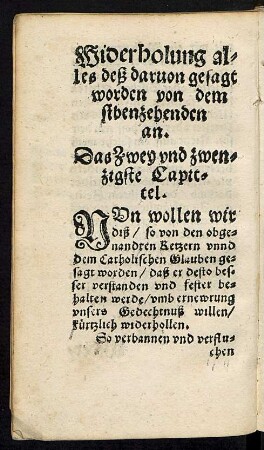 Widerholung al-
les deß daruon gesagt
worden von dem
sibenzehenden
an.
Das Zwey vnd zwen-
zigste Capit-
tel.
NVn wollen wir
diß / so von den obge-
nandten Ketzern vnnd
dem Catholischen Glauben ge-
sagt worden / daß er desto bes-
ser verstanden vnd fester be-
halten werde / vmb ernewrung
vnsers Gedechtnuß willen /
kürtzlich widerhollen.
So verbannen vnd verflu-
chen